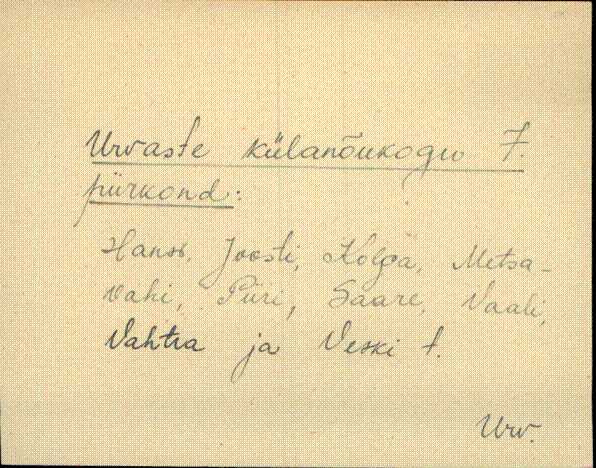 Urvaste külanõukogu 7.
piirkond:
Hansi, Joosti, Kolga, Metsa-
vahi, Piiri, Saare, Vaali,
Vahtra ja Veski t.
Urv.